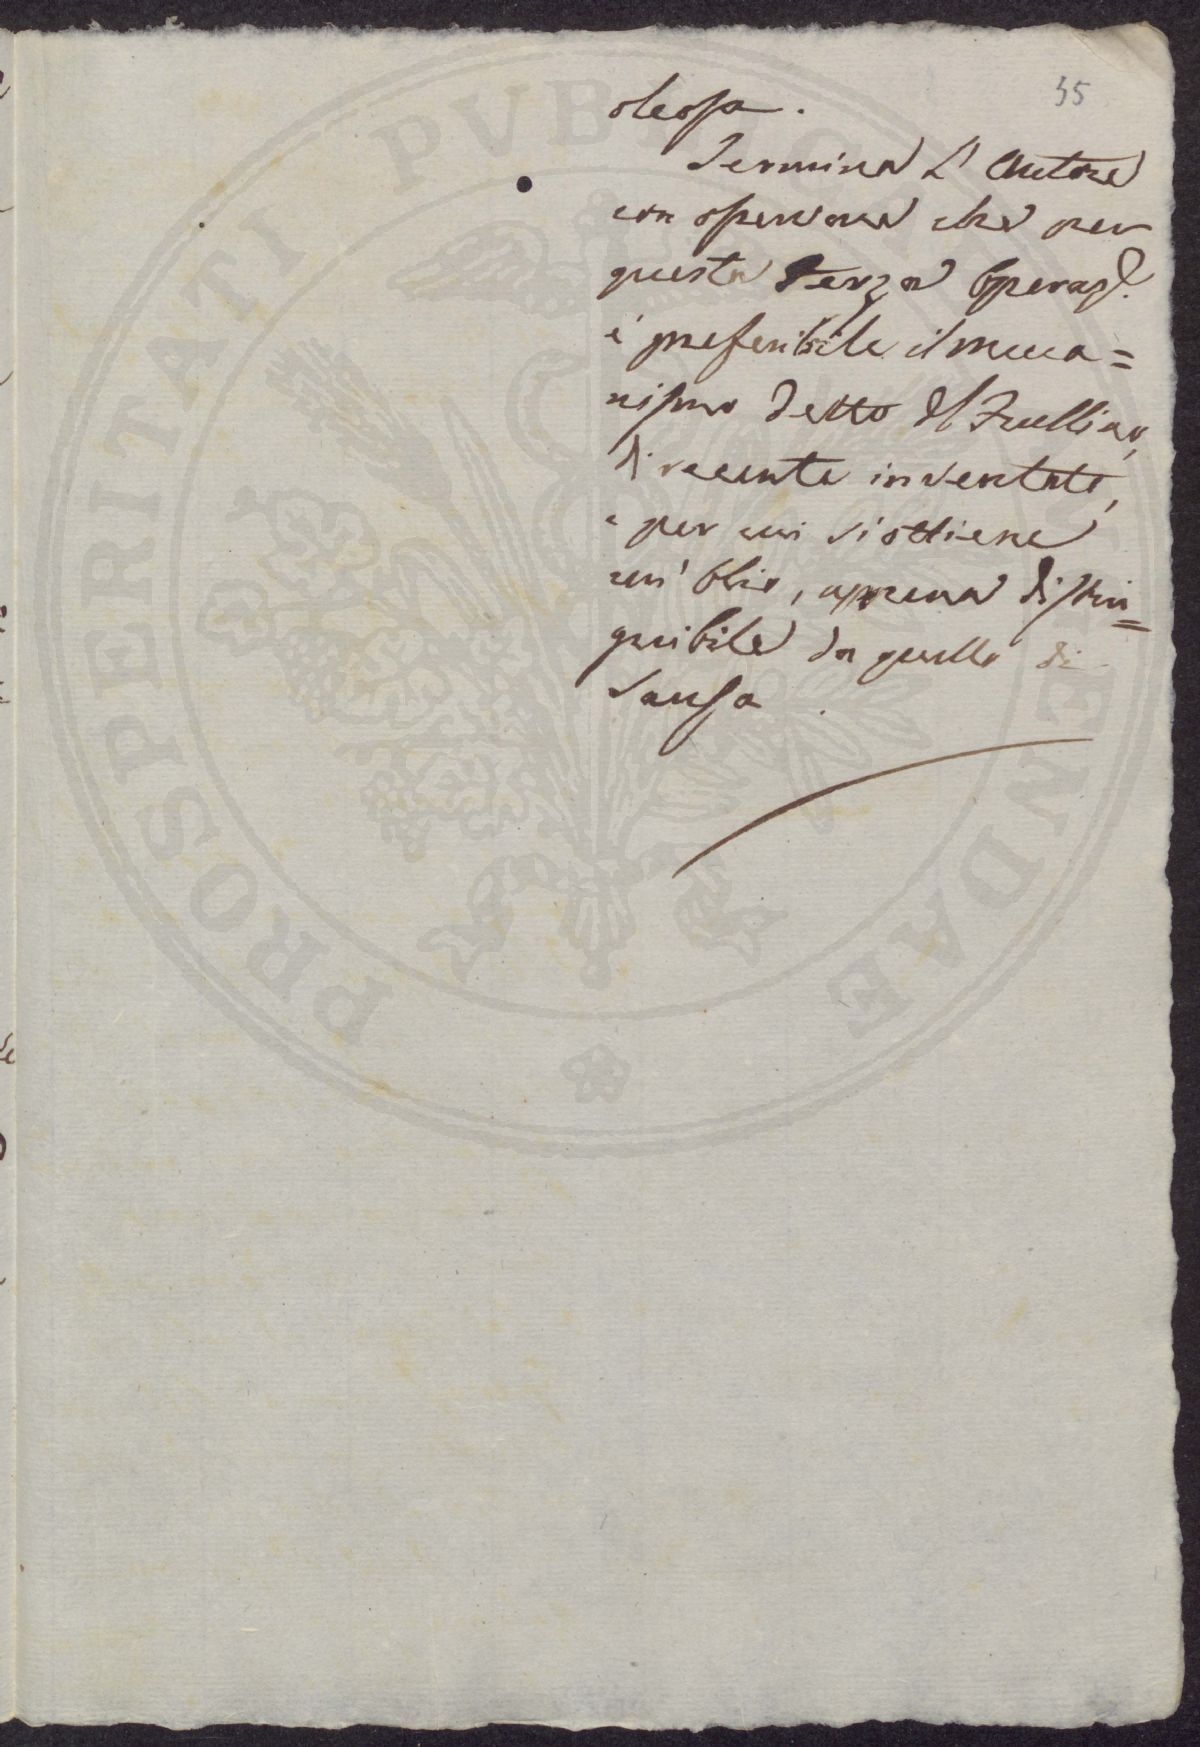 35
oleosa.
Termina L'Autore
con osservare che per
questa Terza Operaz.e
è preferibile il mecca=
nismo detto del Frullino,
di recente inventato,
e per cui si ottiene
un'Olio, appena distin=
guibile da quello di
Sansa.
PROSPERITATI PVBLICAE AVGENDAE